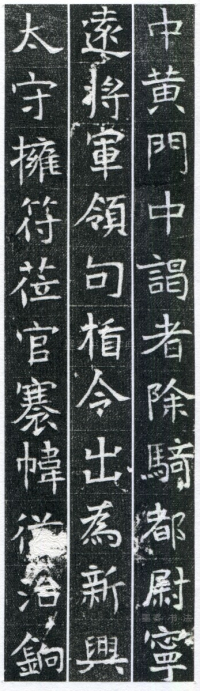 中黃門中謁者除騎都尉寧
遠將軍領句楯令出為新興
太守擁符莅官褰幃從治鉤